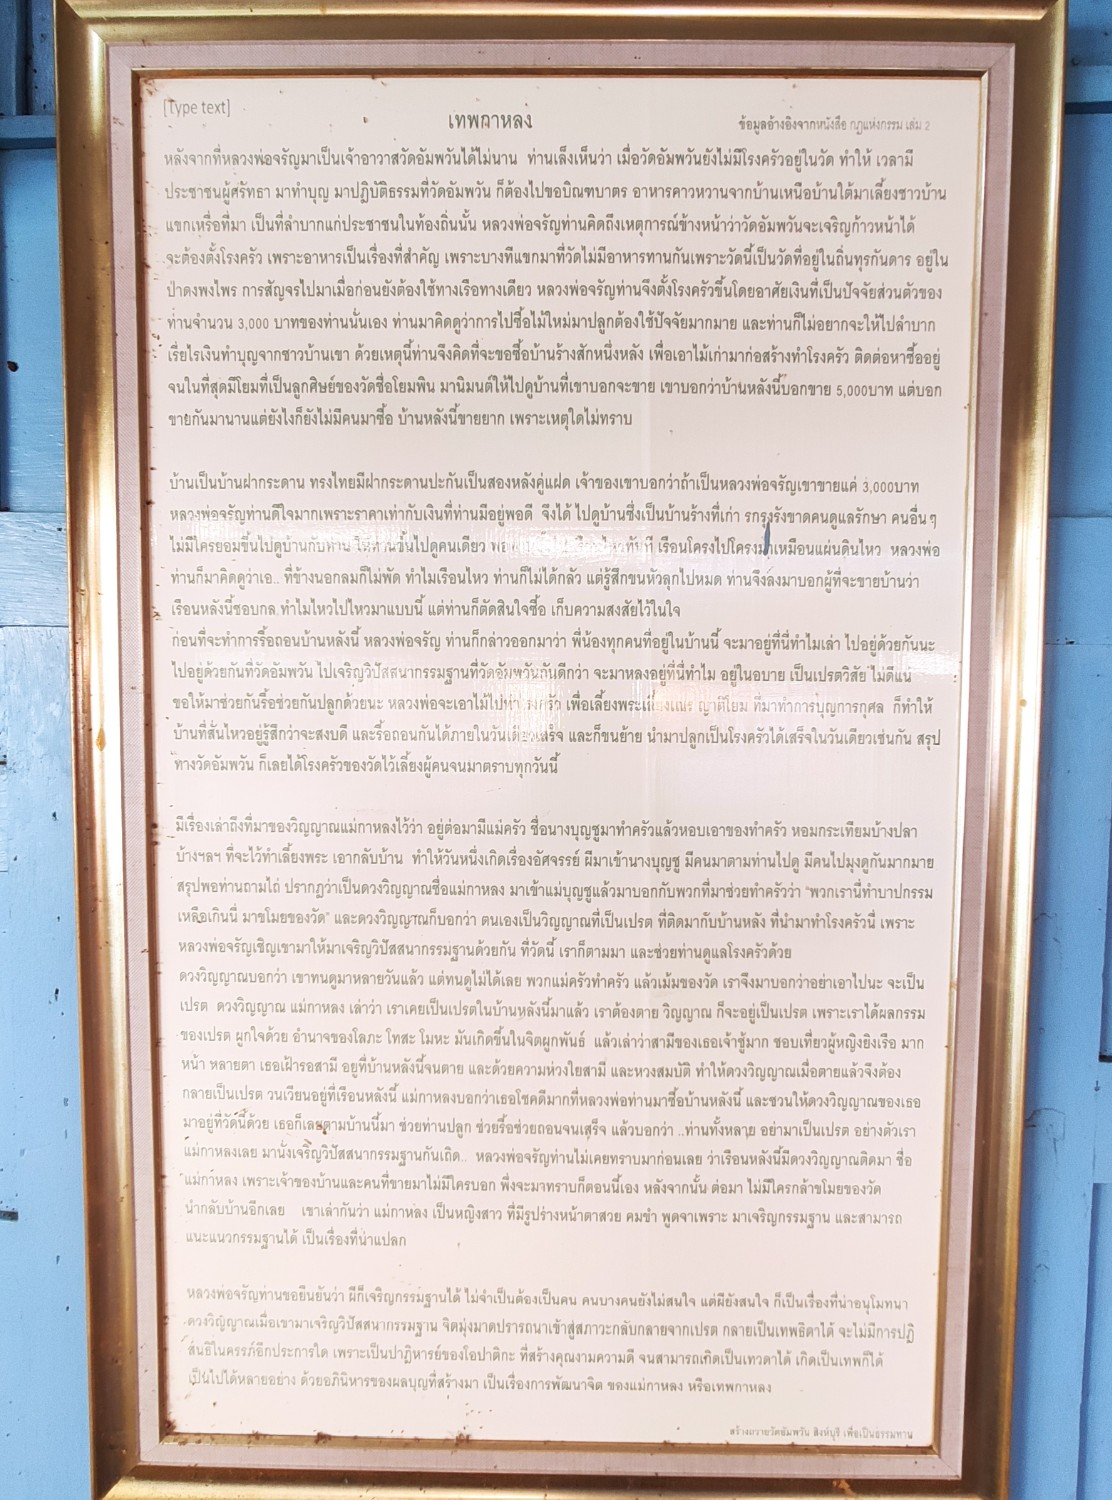 [Type text]
เทพกาหลง
ข้อมูลอ้างอิงจากหนังสือ กฎแห่งกรรม เล่ม 2
หลังจากที่หลวงพ่อจรัญมาเป็นเจ้าอาวาสวัดอัมพวันได้ไม่นาน ท่านเล็งเห็นว่า เมื่อวัดอัมพวันยังไม่มีโรงครัวอยู่ในวัด ทำให้ เวลามี
ประชาชนผู้ศรัทธา มาทำบุญ มาปฏิบัติธรรมที่วัดอัมพวัน ก็ต้องไปขอบิณฑบาตร อาหารคาวหวานจากบ้านเหนือบ้านใต้มาเลี้ยงชาวบ้าน
แขกเหรื่อที่มา เป็นที่ลำบากแก่ประชาชนในท้องถิ่นนั้น หลวงพ่อจรัญท่านคิดถึงเหตุการณ์ข้างหน้าว่าวัดอัมพวันจะเจริญก้าวหน้าได้
จะต้องตั้งโรงครัว เพราะอาหารเป็นเรื่องที่สำคัญ เพราะบางทีแขกมาที่วัดไม่มีอาหารทานกันเพราะวัดนี้เป็นวัดที่อยู่ในถิ่นทุรกันดาร อยู่ใน
ป่าดงพงไพร การสัญจรไปมาเมื่อก่อนยังต้องใช้ทางเรือทางเดียว หลวงพ่อจรัญท่านจึงตั้งโรงครัวขึ้นโดยอาศัยเงินที่เป็นปัจจัยส่วนตัวของ
ท่านจำนวน 3,000 บาทของท่านนั่นเอง ท่านมาคิดดูว่าการไปซื้อไม้ใหม่มาปลูกต้องใช้ปัจจัยมากมาย และท่านก็ไม่อยากจะให้ไปลำบาก
เรี่ยไรเงินทำบุญจากชาวบ้านเขา ด้วยเหตุนี้ท่านจึงคิดที่จะขอซื้อบ้านร้างสักหนึ่งหลัง เพื่อเอาไม้เก่ามาก่อสร้างทำโรงครัว ติดต่อหาซื้ออยู่
จนในที่สุดมีโยมที่เป็นลูกศิษย์ของวัดชื่อโยมพิน มานิมนต์ให้ไปดูบ้านที่เขาบอกจะขาย เขาบอกว่าบ้านหลังนี้บอกขาย 5,000บาท แต่บอก
ขายกันมานานแต่ยังไงก็ยังไม่มีคนมาซื้อ บ้านหลังนี้ขายยาก เพราะเหตุใดไม่ทราบ
บ้านเป็นบ้านฝากระดาน ทรงไทยมีฝากระดานปะกันเป็นสองหลังคู่แฝด เจ้าของเขาบอกว่าถ้าเป็นหลวงพ่อจรัญเขาขายแค่ 3,000บาท
หลวงพ่อจรัญท่านดีใจมากเพราะราคาเท่ากับเงินที่ท่านมีอยู่พอดี จึงได้ ไปดูบ้านซึ่งเป็นบ้านร้างที่เก่า รกรุงรังขาดคนดูแลรักษา คนอื่นๆ
ไม่มีใครยอมขึ้นไปดูบ้านกับท่าน ให้ท่านขึ้นไปดูคนเดียว ทันที เรือนโครงไปโครงมาเหมือนแผ่นดินไหว หลวงพ่อ
ท่านก็มาคิดดูว่าเอ.. ที่ข้างนอกลมก็ไม่พัด ทำไมเรือนไหว ท่านก็ไม่ได้กลัว แต่รู้สึกขนหัวลุกไปหมด ท่านจึงลงมาบอกผู้ที่จะขายบ้านว่า
เรือนหลังนี้ชอบกล.ทำไมไหวไปไหวมาแบบนี้ แต่ท่านก็ตัดสินใจซื้อ เก็บความสงสัยไว้ในใจ
ก่อนที่จะทำการรื้อถอนบ้านหลังนี้ หลวงพ่อจรัญ ท่านก็กล่าวออกมาว่า พี่น้องทุกคนที่อยู่ในบ้านนี้ จะมาอยู่ที่นี่ทำไมเล่า ไปอยู่ด้วยกันนะ
ไปอยู่ด้วยกันที่วัดอัมพวัน ไปเจริญวิปัสสนากรรมฐานที่วัดอัมพวันกันดีกว่า จะมาหลงอยู่ที่นี่ทำไม อยู่ในอบาย เป็นเปรตวิสัย ไม่ดีแน่
ขอให้มาช่วยกันรื้อช่วยกันปลูกด้วยนะ หลวงพ่อจะเอาไม้ไปทำโรงครัว เพื่อเลี้ยงพระเลี้ยงเณร ญาติโยม ที่มาทำการบุญการกุศล ก็ทำให้
บ้านที่สั่นไหวอยู่รู้สึกว่าจะสงบดี และรื้อถอนกันได้ภายในวันเดียวเสร็จ และก็ขนย้าย นำมาปลูกเป็นโรงครัวได้เสร็จในวันเดียวเช่นกัน สรุป
ทางวัดอัมพวัน ก็เลยได้โรงครัวของวัดไว้เลี้ยงผู้คนจนมาตราบทุกวันนี้
มีเรื่องเล่าถึงที่มาของวิญญาณแม่กาหลงไว้ว่า อยู่ต่อมามีแม่ครัว ชื่อนางบุญชูมาทำครัวแล้วหอบเอาของทำครัว หอมกระเทียมบ้างปลา
บ้างฯลฯ ที่จะไว้ทำเลี้ยงพระ เอากลับบ้าน ทำให้วันหนึ่งเกิดเรื่องอัศจรรย์ ผีมาเข้านางบุญชู มีคนมาตามท่านไปดู มีคนไปมุงดูกันมากมาย
สรุปพอท่านถามไถ่ ปรากฏว่าเป็นดวงวิญญาณชื่อแม่กาหลง มาเข้าแม่บุญชูแล้วมาบอกกับพวกที่มาช่วยทำครัวว่า "พวกเรานี่ทำบาปกรรม
เหลือเกินนี่ มาขโมยของวัด" และดวงวิญญาณก็บอกว่า ตนเองเป็นวิญญาณที่เป็นเปรต ที่ติดมากับบ้านหลัง ที่นำมาทำโรงครัวนี่ เพราะ
หลวงพ่อจรัญเชิญเขามาให้มาเจริญวิปัสสนากรรมฐานด้วยกัน ที่วัดนี้ เราก็ตามมา และช่วยท่านดูแลโรงครัวด้วย
ดวงวิญญาณบอกว่า เขาทนดูมาหลายวันแล้ว แต่ทนดูไม่ได้เลย พวกแม่ครัวทำครัว แล้วเม้มของวัด เราจึงมาบอกว่าอย่าเอาไปนะ จะเป็น
เปรต ดวงวิญญาณ แม่กาหลง เล่าว่า เราเคยเป็นเปรตในบ้านหลังนี้มาแล้ว เราต้องตาย วิญญาณ ก็จะอยู่เป็นเปรต เพราะเราได้ผลกรรม
ของเปรต ผูกใจด้วย อำนาจของโลภะ โทสะ โมหะ มันเกิดขึ้นในจิตผูกพันธ์ แล้วเล่าว่าสามีของเธอเจ้าชู้มาก ชอบเที่ยวผู้หญิงยิงเรือ มาก
หน้า หลายตา เธอเฝ้ารอสามี อยู่ที่บ้านหลังนี้จนตาย และด้วยความห่วงใยสามี และหวงสมบัติ ทำให้ดวงวิญญาณเมื่อตายแล้วจึงต้อง
กลายเป็นเปรต วนเวียนอยู่ที่เรือนหลังนี้ แม่กาหลงบอกว่าเธอโชคดีมากที่หลวงพ่อท่านมาซื้อบ้านหลังนี้ และชวนให้ดวงวิญญาณของเธอ
มาอยู่ที่วัดนี้ด้วย เธอก็เลยตามบ้านนี้มา ช่วยท่านปลูก ช่วยรื้อช่วยถอนจนเสร็จ แล้วบอกว่า ..ท่านทั้งหลาย อย่ามาเป็นเปรต อย่างตัวเรา
แม่กาหลงเลย มานั่งเจริญวิปัสสนากรรมฐานกันเถิด.. หลวงพ่อจรัญท่านไม่เคยทราบมาก่อนเลย ว่าเรือนหลังนี้มีดวงวิญญาณติดมา ชื่อ
แม่กาหลง เพราะเจ้าของบ้านและคนที่ขายมาไม่มีใครบอก พึ่งจะมาทราบก็ตอนนี้เอง หลังจากนั้น ต่อมา ไม่มีใครกล้าขโมยของวัด
นำกลับบ้านอีกเลย เขาเล่ากันว่า แม่กาหลง เป็นหญิงสาว ที่มีรูปร่างหน้าตาสวย คมขำ พูดจาเพราะ มาเจริญกรรมฐาน และสามารถ
แนะแนวกรรมฐานได้ เป็นเรื่องที่น่าแปลก
หลวงพ่อจรัญท่านขอยืนยันว่า ผีก็เจริญกรรมฐานได้ ไม่จำเป็นต้องเป็นคน คนบางคนยังไม่สนใจ แต่ผียังสนใจ ก็เป็นเรื่องที่น่าอนุโมทนา
ดวงวิญญาณเมื่อเขามาเจริญวิปัสสนากรรมฐาน จิตมุ่งมาดปรารถนาเข้าสู่สภาวะกลับกลายจากเปรต กลายเป็นเทพธิดาได้ จะไม่มีการปฏิ
สนธิในครรภ์อีกประการใด เพราะเป็นปาฏิหารย์ของโอปาติกะ ที่สร้างคุณงามความดี จนสามารถเกิดเป็นเทวดาได้ เกิดเป็นเทพก็ได้
เป็นไปได้หลายอย่าง ด้วยอภินิหารของผลบุญที่สร้างมา เป็นเรื่องการพัฒนาจิต ของแม่กาหลง หรือเทพกาหลง
สร้างถวายวัดอัมพวัน สิงห์บุรี เพื่อเป็นธรรมทาน